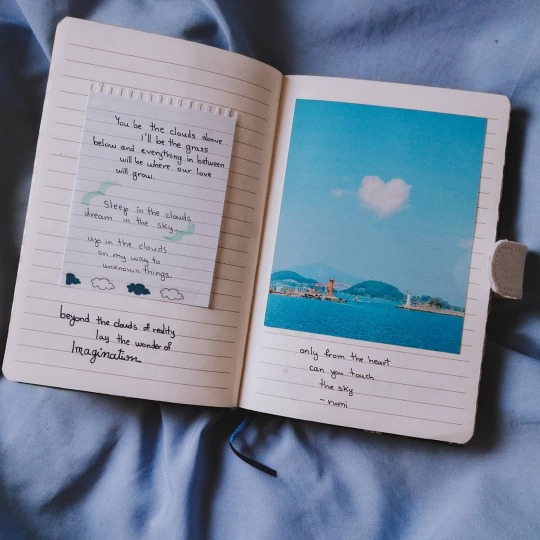 You be the clouds above
i'll be the grass
below and everything in between
will be where our love
will grow.
Sleep in the clouds
dream in the sky
up in the clouds
on my way to
unknown things.
beyond the clouds of reality
lay the wonder of
Imagination
only from the heart
can you touch
the sky
- rumi